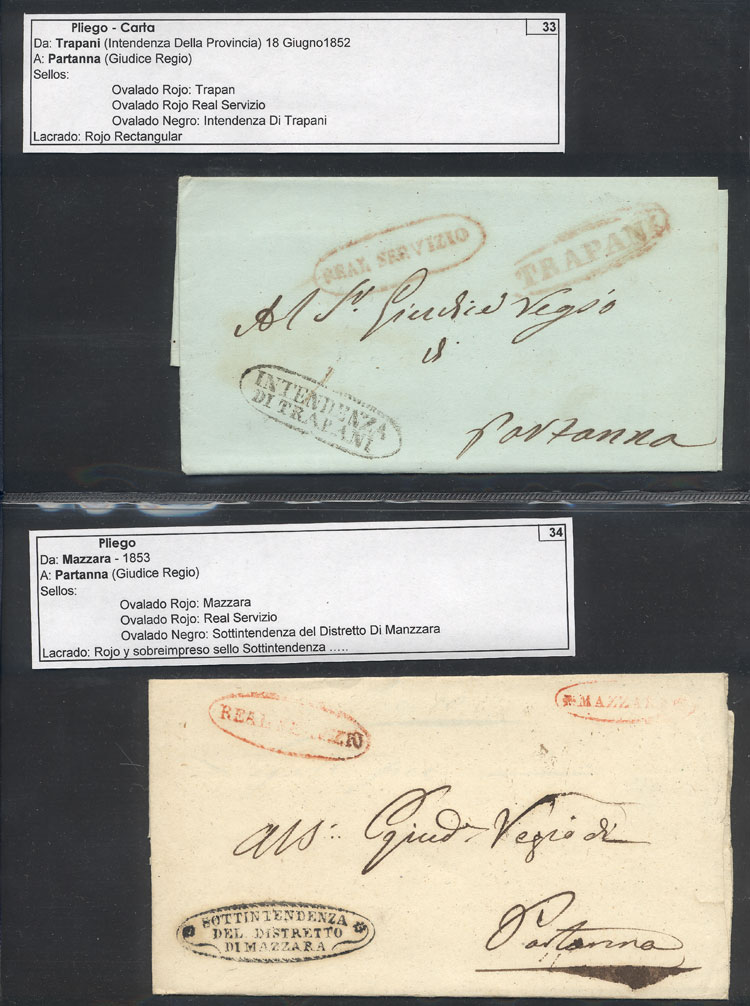 Pliego - Carta
33
Da: Trapani (Intendenza Della Provincia) 18 Giugno1852
A: Partanna (Giudice Regio)
Sellos:
Ovalado Rojo: Trapan
Ovalado Rojo Real Servizio
Ovalado Negro: Intendenza Di Trapani
Lacrado: Rojo Rectangular
REAL SERVIZIO
TRAPANI
Al Sr. Giudice Regio
di
INTENDENZA
DI TRAPANI
Partanna
Pliego
34
Da: Mazzara - 1853
A: Partanna (Giudice Regio)
Sellos:
Ovalado Rojo: Mazzara
Ovalado Rojo: Real Servizio
Ovalado Negro: Sottintendenza del Distretto Di Manzzara
Lacrado: Rojo y sobreimpreso sello Sottintendenza .....
REAL SERVIZIO
MAZZARA
Giud. Regio di
SOTTINTENDENZA
DEL DISTRETTO
DI MAZZARA
Partanna